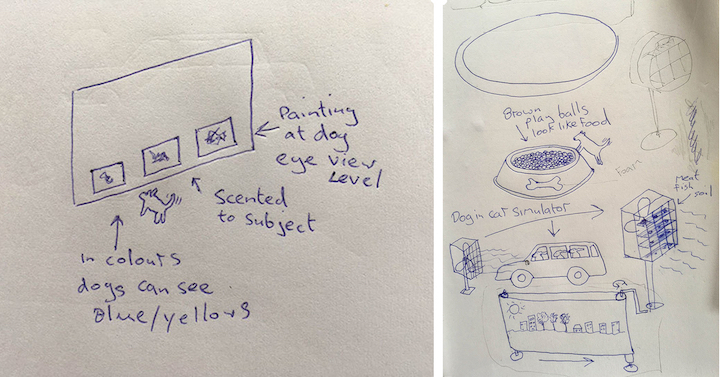 Painting
at dog
eye view
level
Scented
to subject
in colours
dogs can see
Blue/yellows
Brown
play balls
look like food
Foam
meat
fish
soil
Dog in car simulator